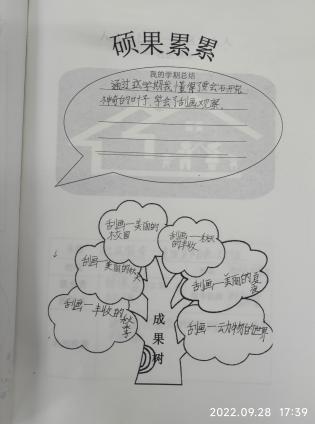 硕果累累
我的学期总结
通过这学期我懂得了
的叶子,学会了刮画观察.
刮画—美丽的
校园
刮画—
的丰收
刮画—美丽的秋天
刮画—美丽的夏
刮画—丰收的
秋季
刮画—动物的世界
成果树
2022.09.28 17:39